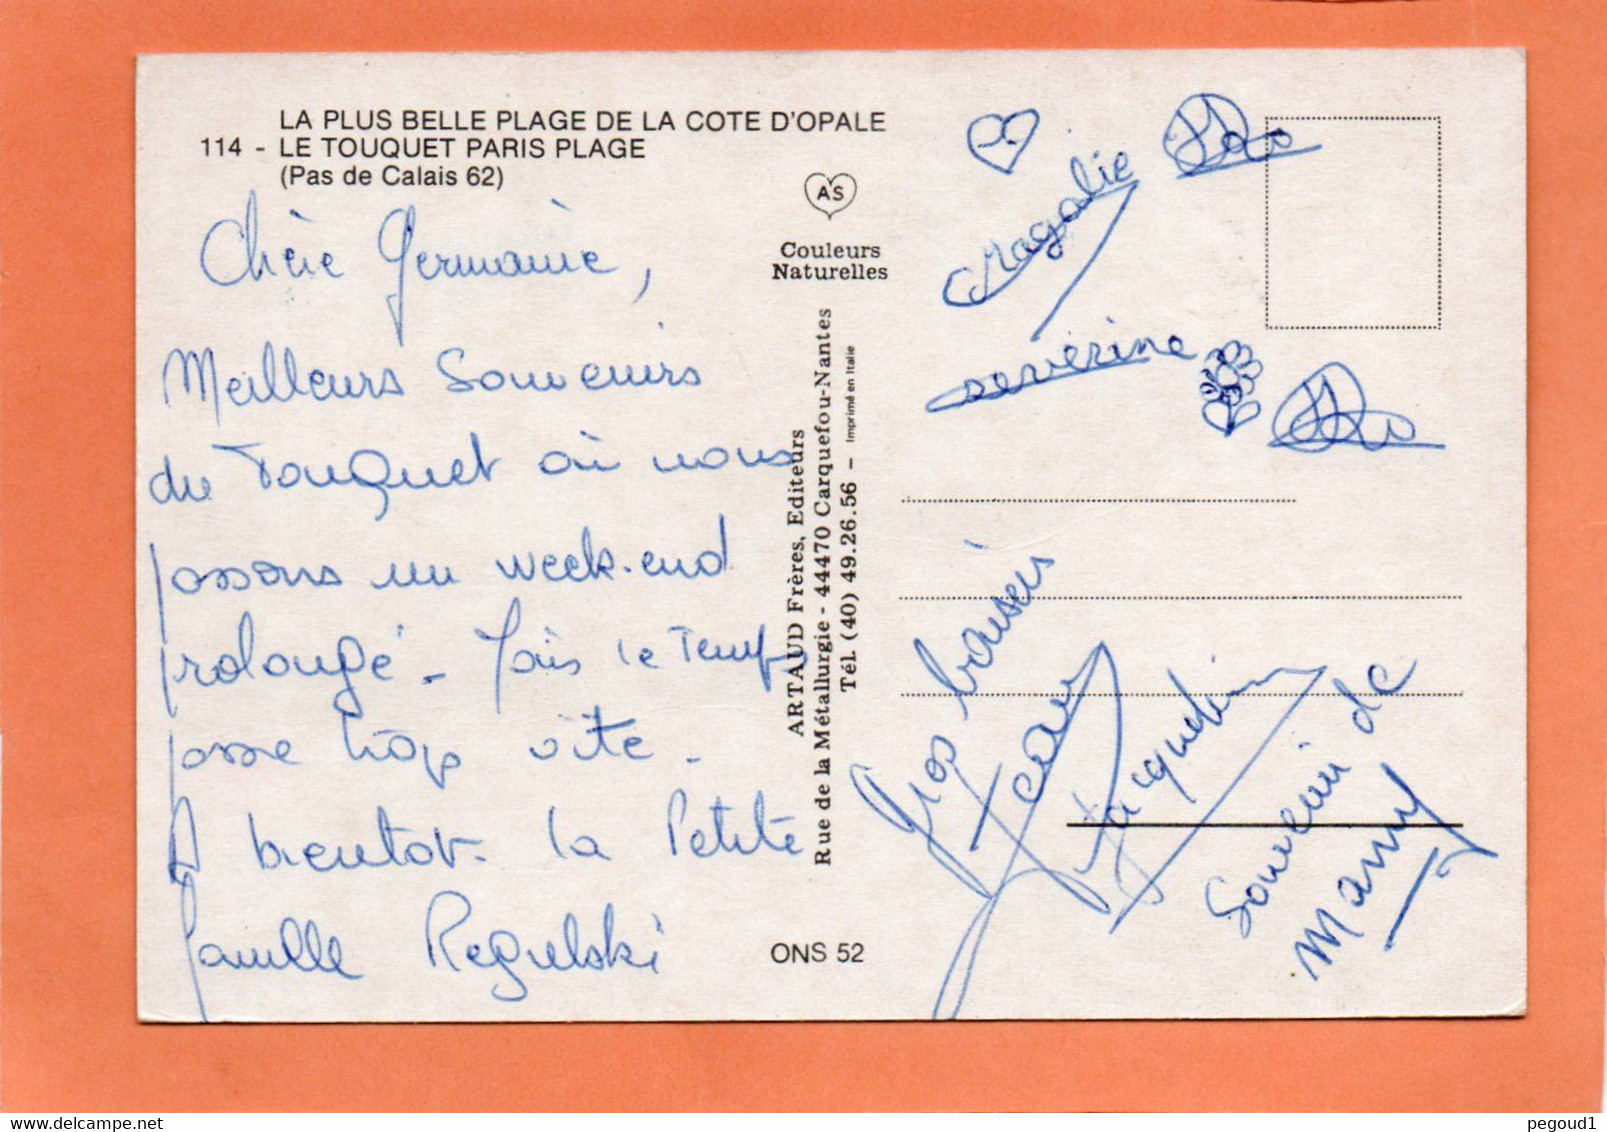 LA PLUS BELLE PLAGE DE LA COTE D'OPALE
114 - LE TOUQUET PARIS PLAGE
(Pas de Calais 62)
Chère Germaine,
Meilleurs Souvenirs
du Touquet où nous
passons un week-end
prolongé - Mais le Temps
passe trop vite.
A bientôt. la Petite
famille Regulski
AS
Couleurs
Naturelles
ARTAUD Frères, Editeurs
Rue de la Métallurgie - 44470 Carquefou-Nantes
Tél. (40) 49.26.56 - Imprimé en Italie
ONS 52
Magalie
severine
Gros baisers
Jean
Jacqueline
Souvenir de
Mamy
Delcampe.net
pegoud1